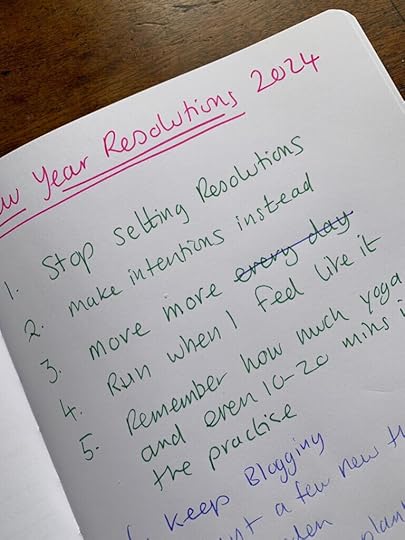 New Year Resolutions 2024
1. Stop setting Resolutions
2. make intentions instead
3. move more every day
4. Run when I feel like it
5. Remember how much yoga
and even 10-20 mins i
the practise
Keep Blogging
a few new th